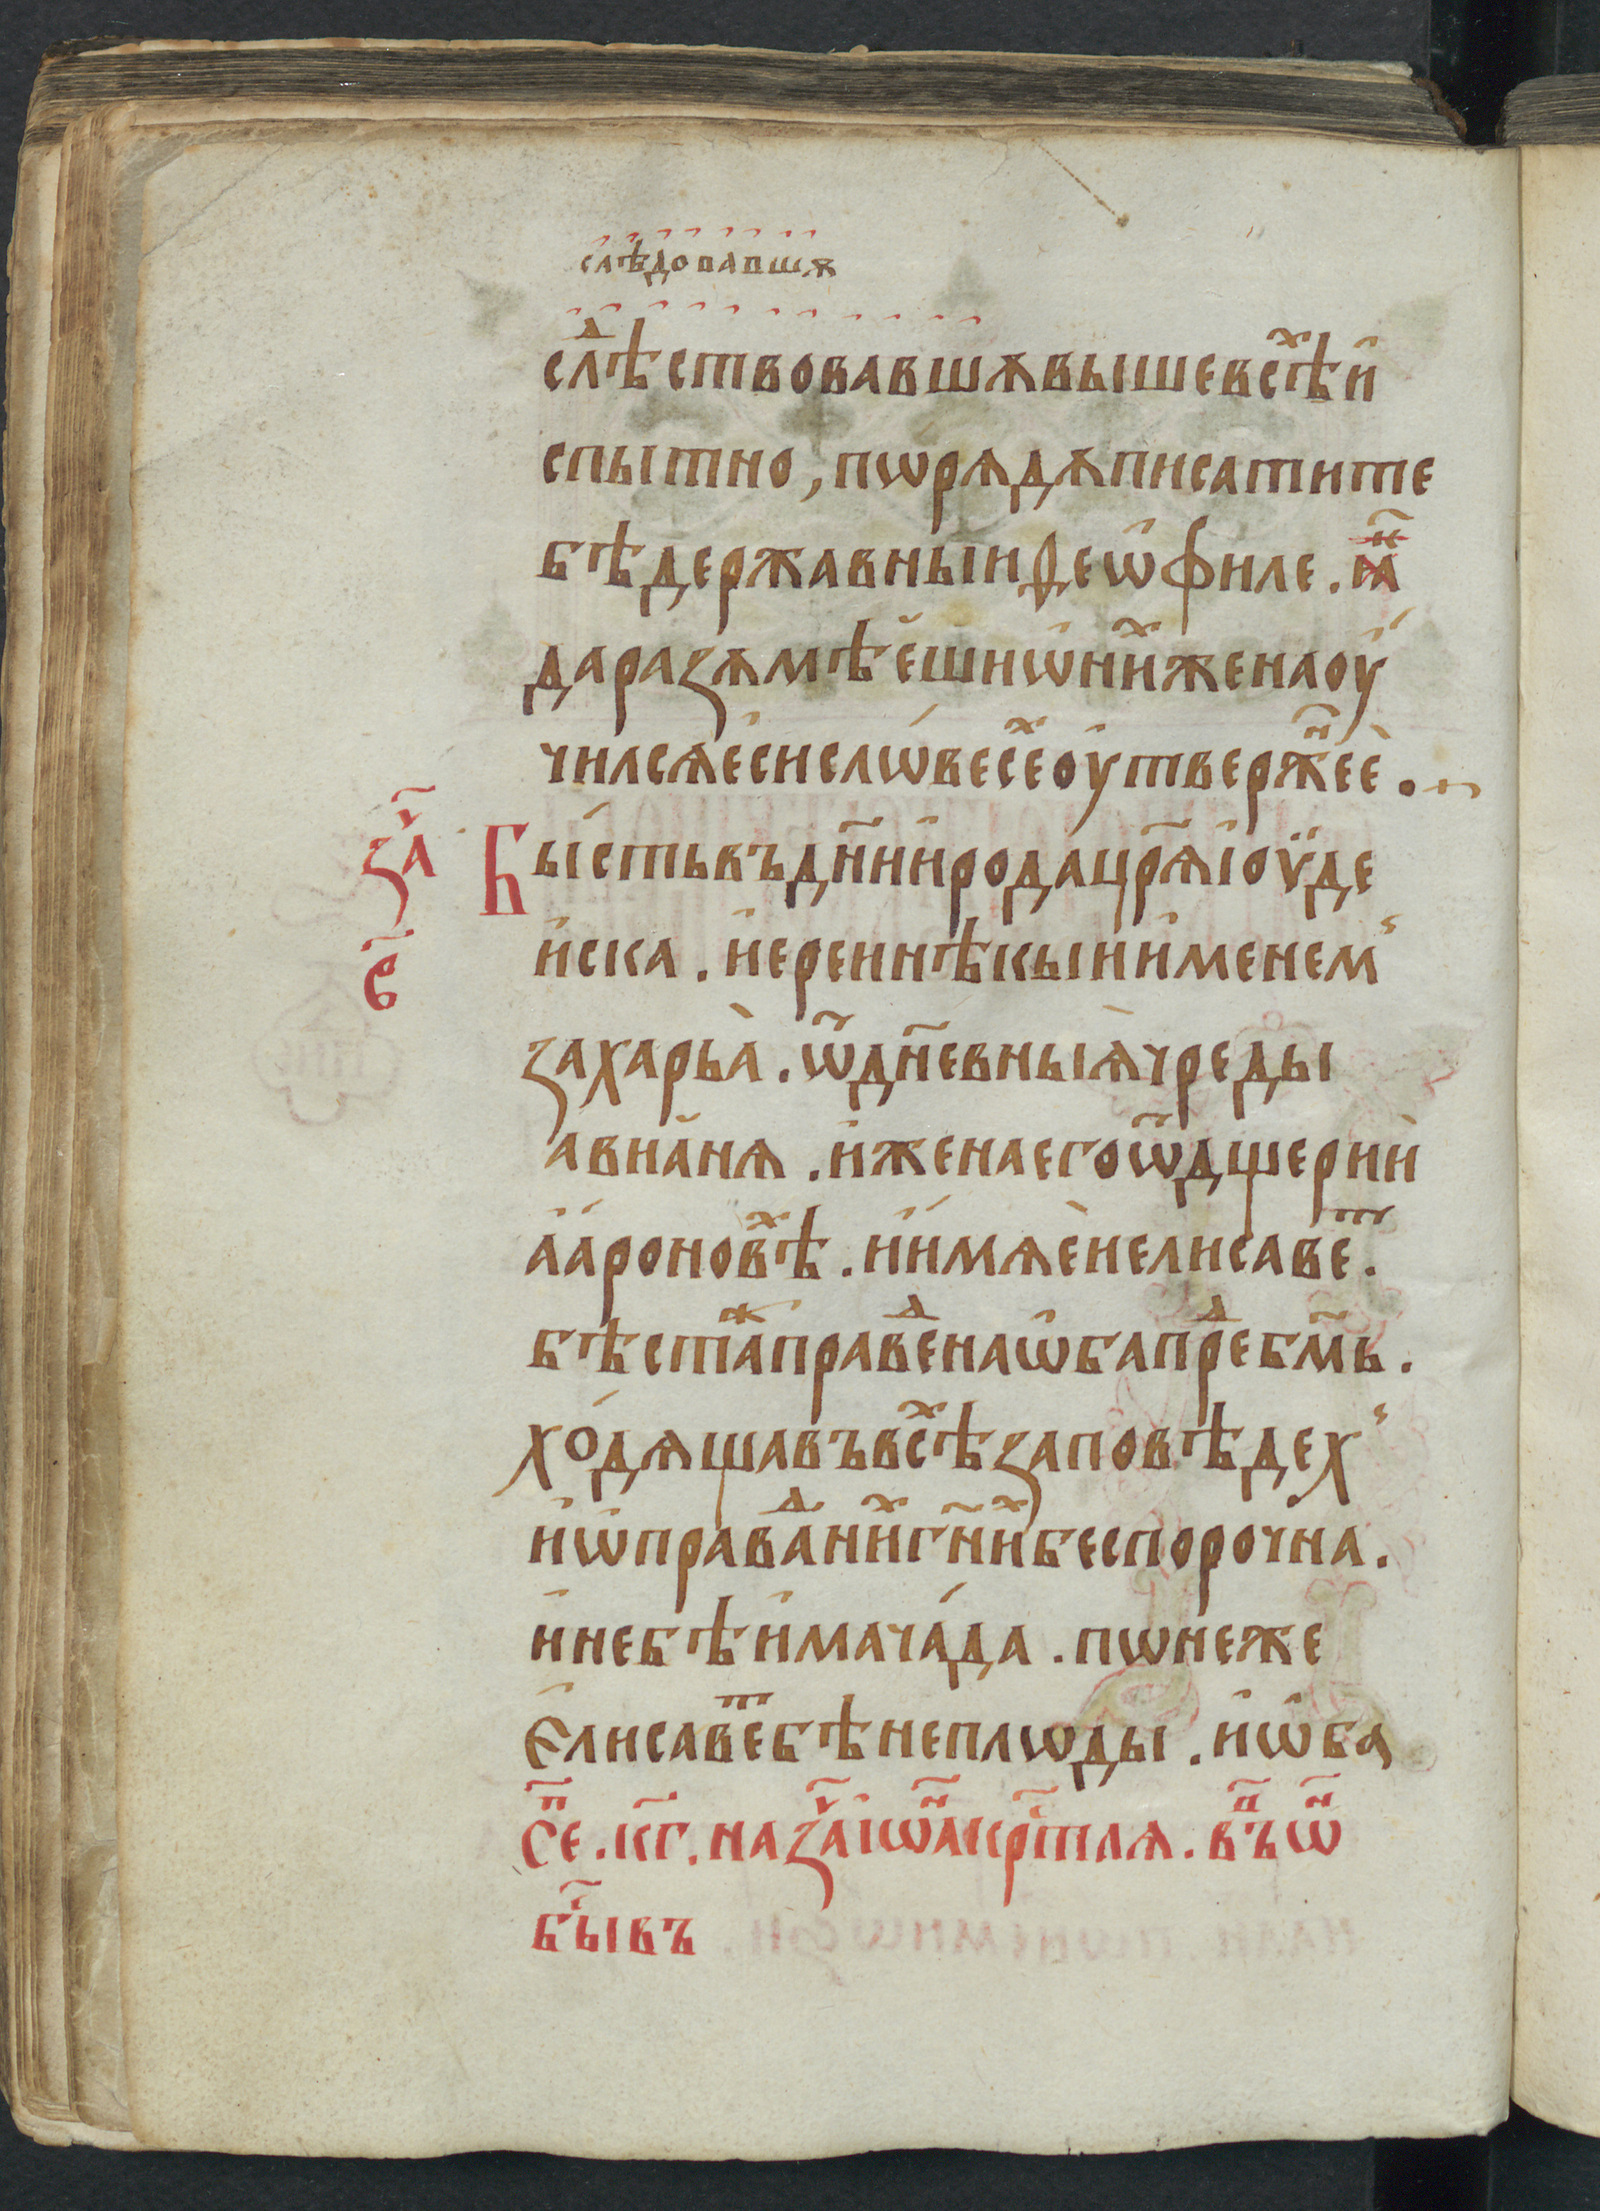 слѣдовавшѫ
слѣⷣствовавшѫвышевсѣⷯи҆
спытно, пѡрѧдѫписатите
бѣдержавныиѳеѡ҆филе. ꙗⷦ҇
даразѫмѣе҆шиѡ҆ни́ⷯженаоу҆
чилсѧе҆сисло́весеⷯоу҆твержⷩ҇еѐ.
за҇ⷱ Бы́стьвъдн҃ии҆родацр҃ѧі҆оүде
и҆ска. і҆ереинѣкыи҆и҆менем̾
в҃ захарьꙗ̀. ѿдн҃евныѧ̀чреды
авиа́нѧ. и҆женаегоѿдщерии҆
а҆а҆роновѣⷯ. и҆и҆мѧѐи҆елисавеⷮ.
бѣстаⷤправеⷣнаѡ҆бапреⷣбг҃мь.
хо́дѧщавъвсѣⷯзаповѣдех̾
и҆ѡ҆праваⷣниⷯгн҃иⷯбеспорочна.
и҆небѣи҆мача́да. пѡнеже
Е҆лисавеⷮбѣнеплѡды. и҆ѡ҆ба
Сеⷫ҇. к҃г.назаⷱ҇і҆ѡⷩ҇акрⷭ҇тлѧ. въⷫ҇ѡⷩ҇
быⷭ҇въ